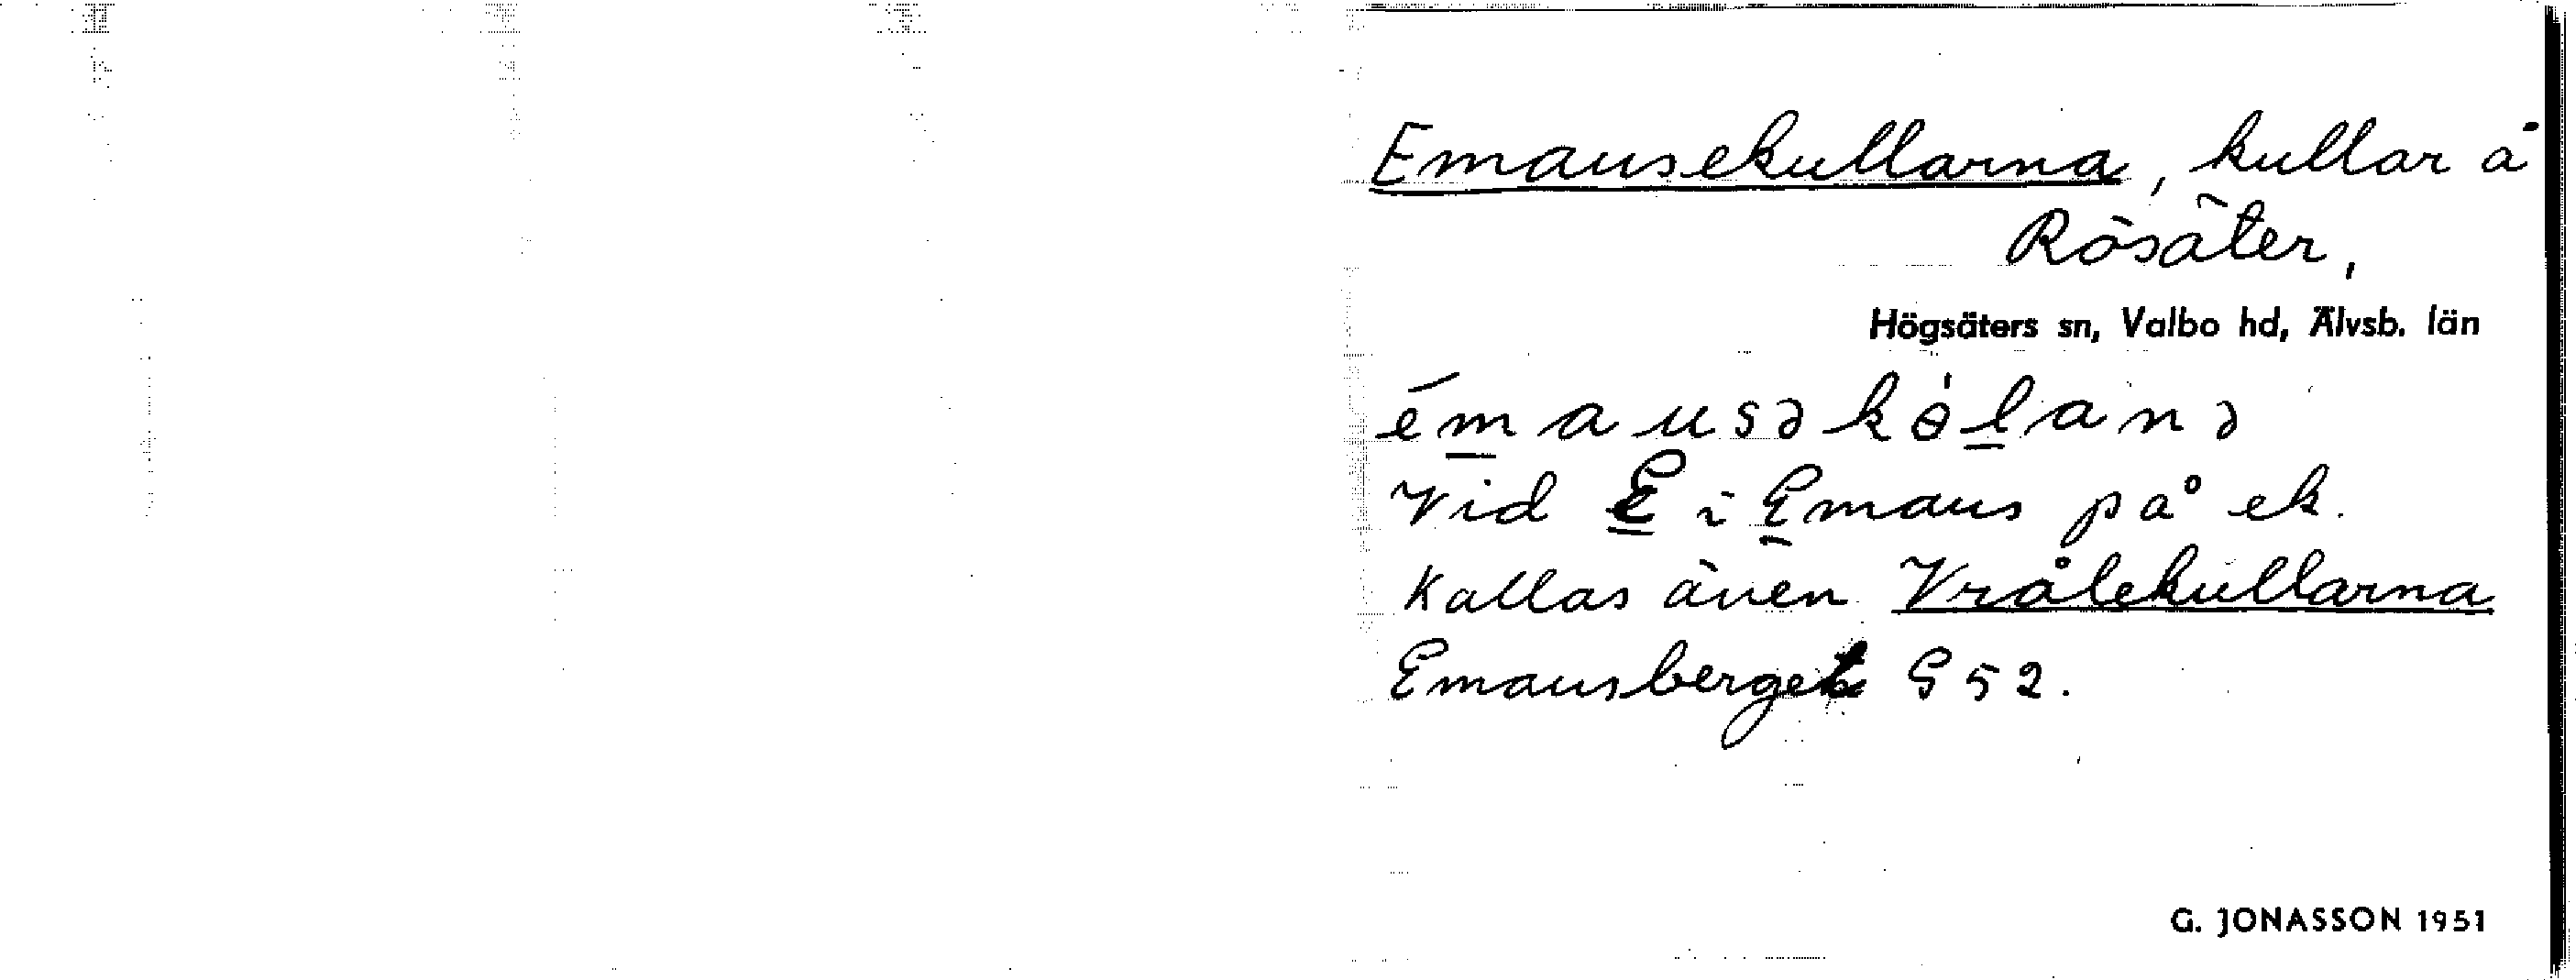 Emausekullarna, kullar å
Rösäter,
Högsäters sn, Valbo hd, Älvsb. län
émausəkɵ̀lanə
Vid E i Emaus på ek.
Kallas även Vrålekullarna
Emausberget S 52.
G. JONASSON 1951